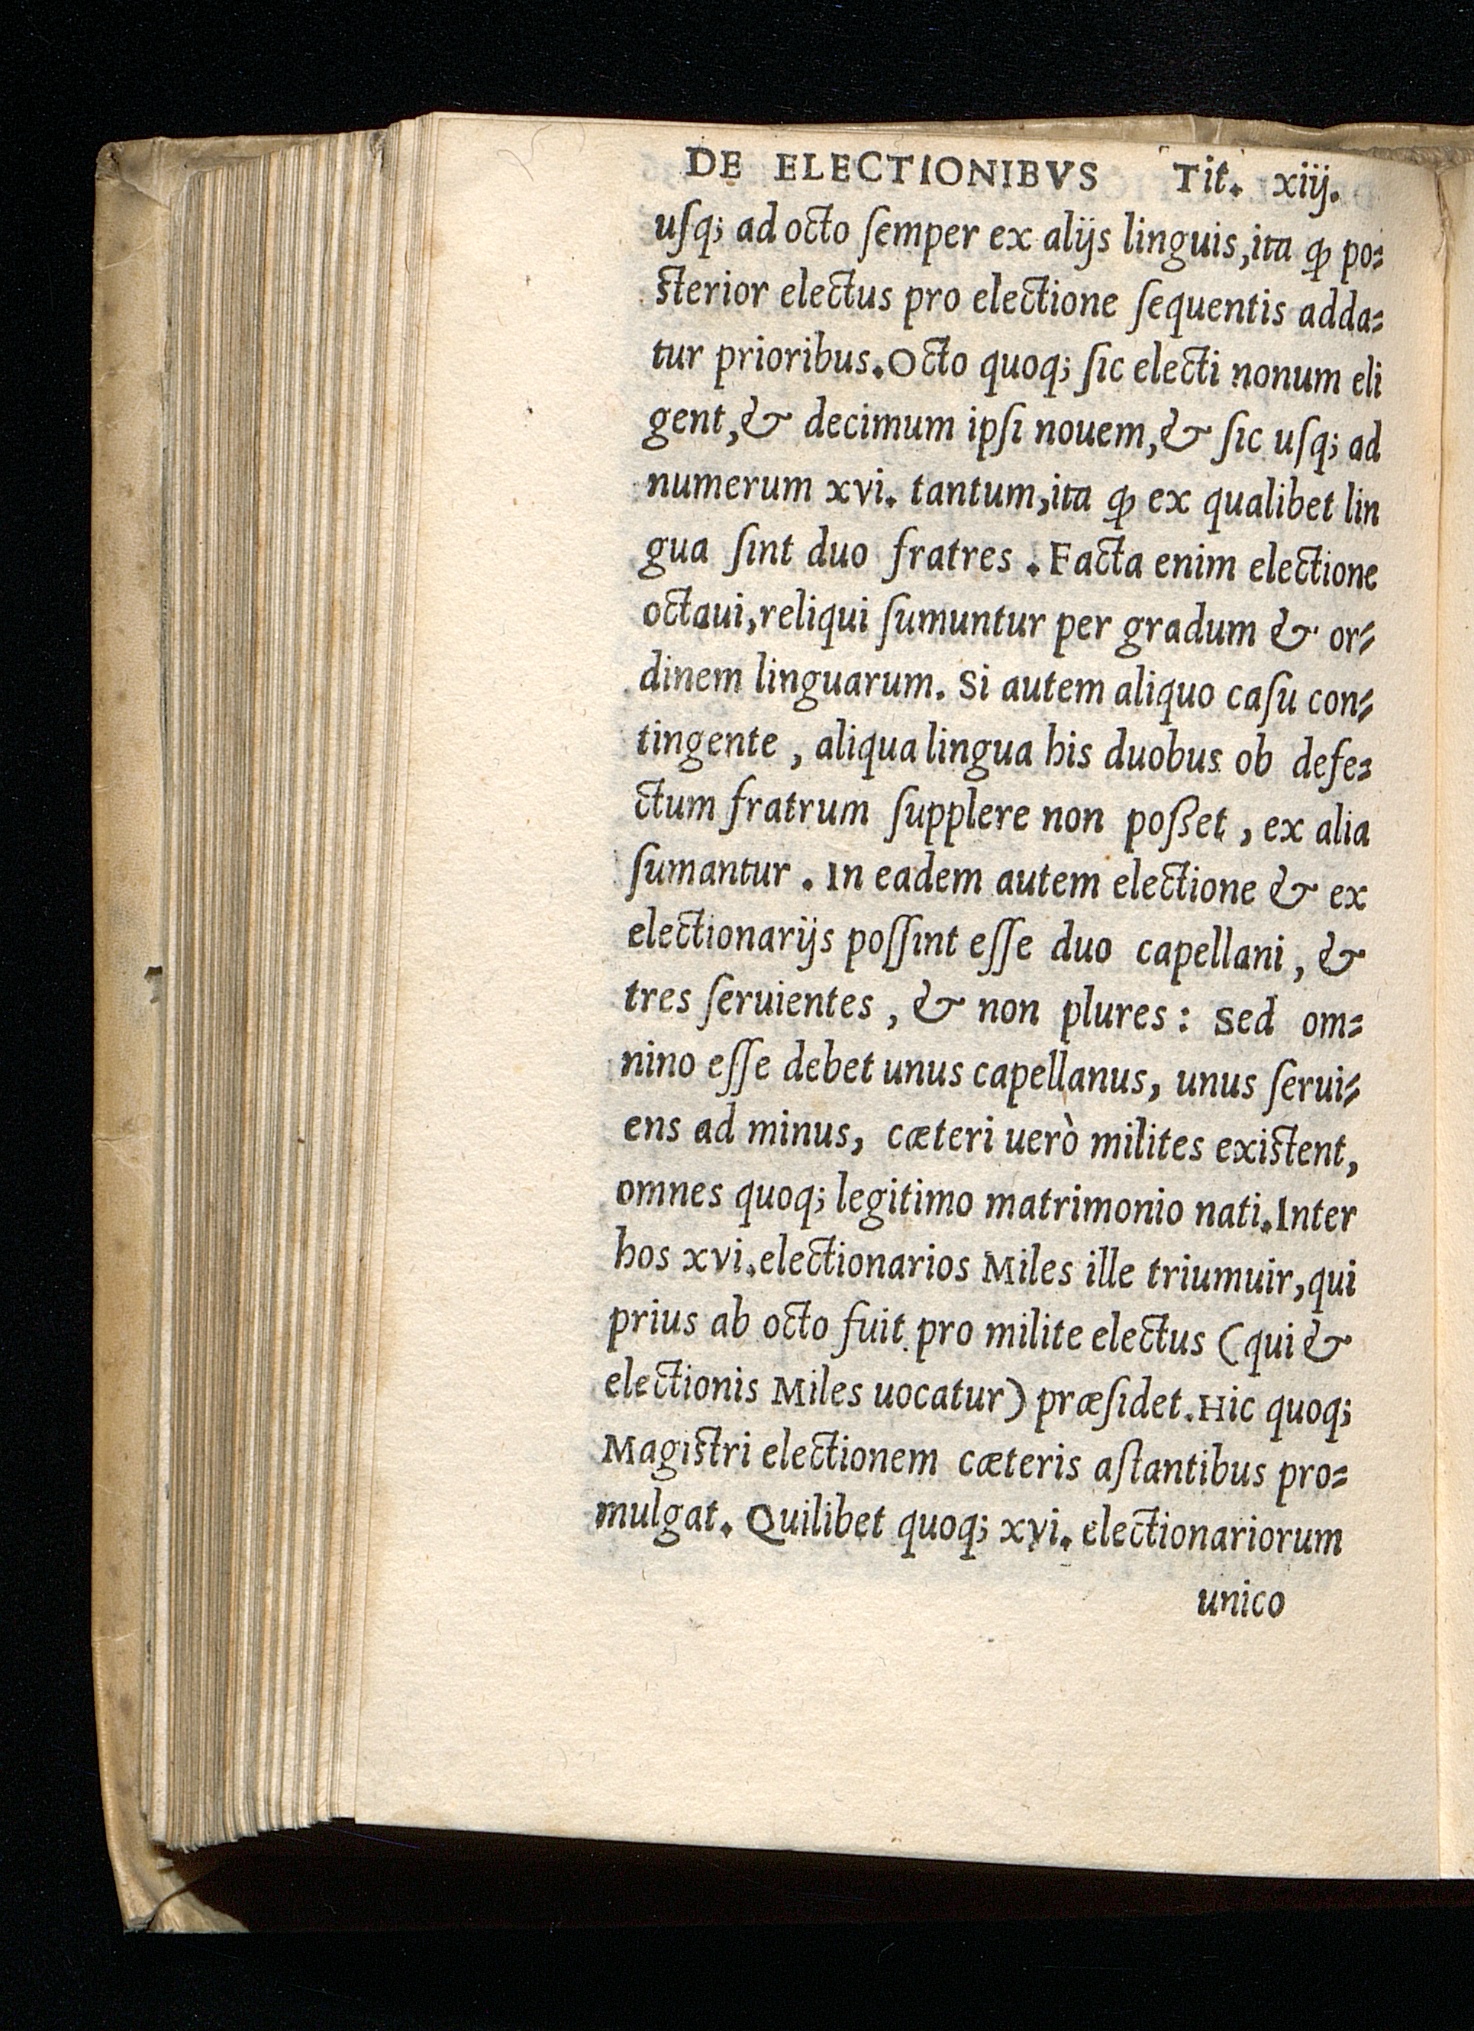 DE ELECTIONIBVS Tit. xiij.
uſq; ad octo ſemper ex alijs linguis, ita ꝙ po=
sterior electus pro electione ſequentis adda=
tur prioribus. Octo quoq; ſic electi nonum eli
gent, & decimum ipſi nouem, & ſic uſq; ad
numerum xvi. tantum, ita ꝙ ex qualibet lin
gua ſint duo fratres . Facta enim electione
octaui, reliqui ſumuntur per gradum & or=
dinem linguarum. Si autem aliquo caſu con=
tingente , aliqua lingua his duobus ob defe=
ctum fratrum ſupplere non poßet , ex alia
ſumantur . In eadem autem electione & ex
electionarijs poſſint eſſe duo capellani , &
tres ſeruientes , & non plures : Sed om=
nino eſſe debet unus capellanus, unus ſerui=
ens ad minus, cæteri uerò milites existent,
omnes quoq; legitimo matrimonio nati. Inter
hos xvi. electionarios Miles ille triumuir, qui
prius ab octo fuit pro milite electus (qui &
electionis Miles uocatur) præſidet. Hic quoq;
Magistri electionem cæteris aſtantibus pro=
mulgat. Quilibet quoq; xvi. electionariorum
unico